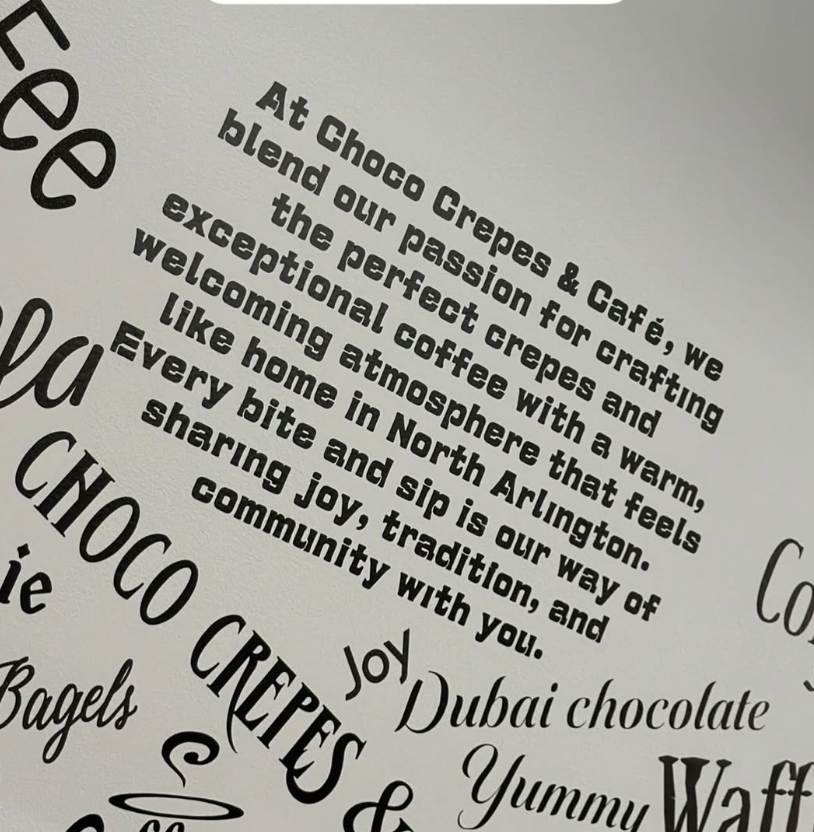 At Choco Crepes & Café, we
blend our passion for crafting
the perfect crepes and
exceptional coffee with a warm,
welcoming atmosphere that feels
like home in North Arlington.
Every bite and sip is our way of
sharing joy, tradition, and
community with you.
CHOCO CREPES &
Joy
Bagels
Dubai chocolate
Yummy